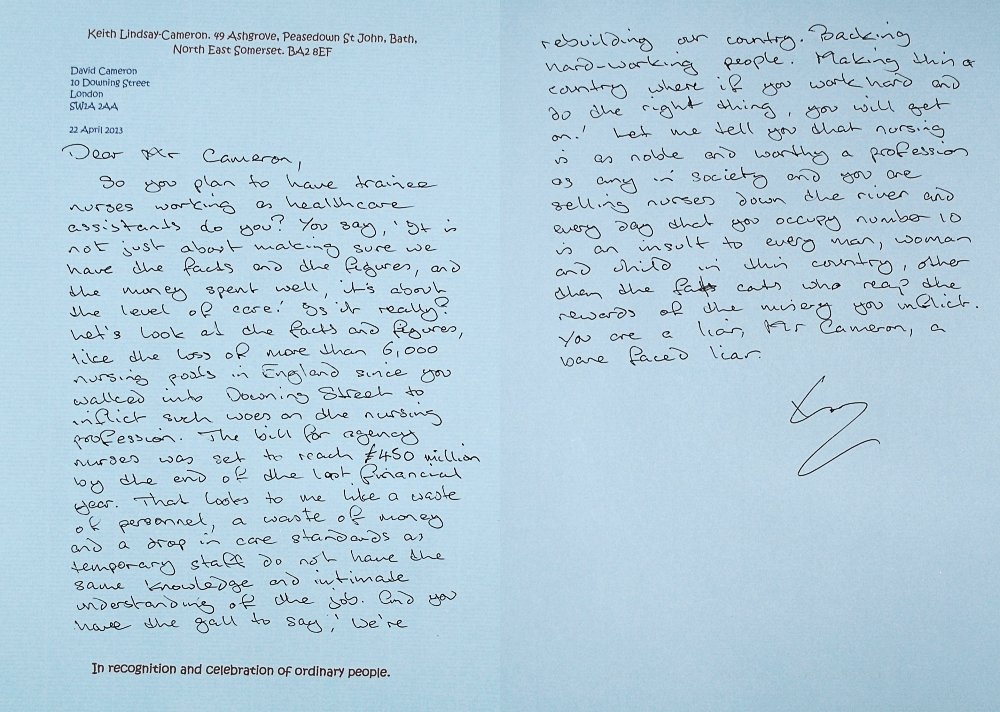 Keith Lindsay-Cameron. 49 Ashgrove, Peasedown St John, Bath,
North East Somerset. BA2 8EF
David Cameron
10 Downing Street
London
SW1A 2AA
22 April 2013
Dear Mr Cameron,
So you plan to have trainee
nurses working as healthcare
assistants do you? You say, 'It is
not just about making sure we
have the facts and the figures, and
the money spent well, it's about
the level of care.' Is it really?
Let's look at the facts and figures,
like the loss of more than 6,000
nursing posts in England since you
walked into Downing Street to
inflict such woes on the nursing
profession. The bill for agency
nurses was set to reach £450 million
by the end of the last financial
year. That looks to me like a waste
of personnel, a waste of money
and a drop in care standards as
temporary staff do not have the
same knowledge and intimate
understanding of the job. And you
have the gall to say, 'We're
In recognition and celebration of ordinary people.
rebuilding our country. Backing
hard-working people. Making this a
country where if you work hard and
do the right thing, you will get
on.' Let me tell you that nursing
is as noble and worthy a profession
as any in society and you are
selling nurses down the river and
every day that you occupy number 10
is an insult to every man, woman
and child in this country, other
than the fat cats who reap the
rewards of the misery you inflict.
You are a liar, Mr Cameron, a
bare faced liar.